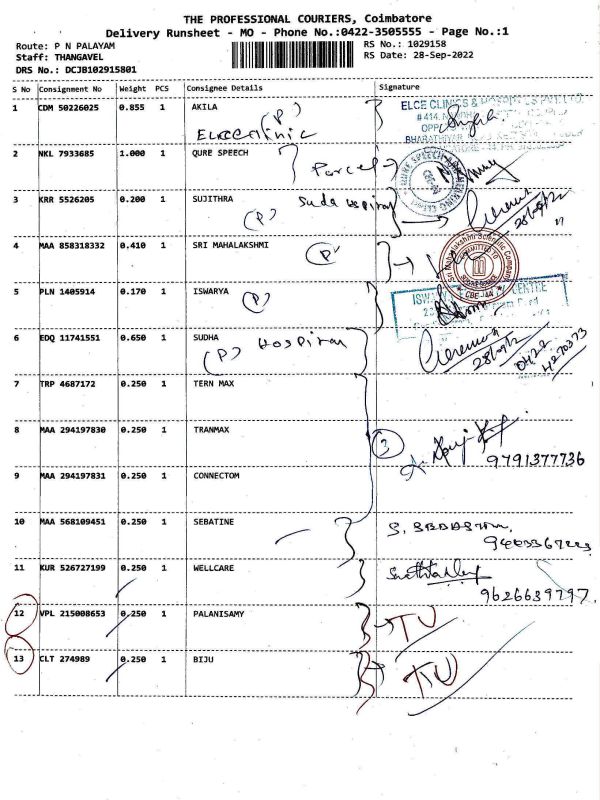 THE PROFESSIONAL COURIERS, Coimbatore
Delivery Runsheet - MO - Phone No.:0422-3505555 - Page No.:1
Route: P N PALAYAM
RS No.: 1029158
Staff: THANGAVEL
RS Date: 28-Sep-2022
DRS No.: DCJB102915801
S No Consignment No Weight PCS Consignee Details Signature
1 CDM 50226025 0.855 1 AKILA
(P)
ELCE CLINICS &
# 414,
OPP
BHARATHIYAR
2 NKL 7933685 1.000 1 QURE SPEECH
Parcel
QURE SPEECH
3 KRR 5526205 0.200 1 SUJITHRA
(P)
28/9/22
4 MAA 858318332 0.410 1 SRI MAHALAKSHMI
(P)
Sri Mahalakshmi Scientific Company
COMMITTED TO
CBE-JAN
5 PLN 1405914 0.170 1 ISWARYA
(P)
CENTRE
6 EDQ 11741551 0.650 1 SUDHA
(P)
28/9/22
0422
4270373
7 TRP 4687172 0.250 1 TERN MAX
8 MAA 294197830 0.250 1 TRANMAX
3
9791377736
9 MAA 294197831 0.250 1 CONNECTOM
10 MAA 568109451 0.250 1 SEBATINE
11 KUR 526727199 0.250 1 WELLCARE
9626639797
12 VPL 215008653 0.250 1 PALANISAMY
TU
13 CLT 274989 0.250 1 BIJU
TU